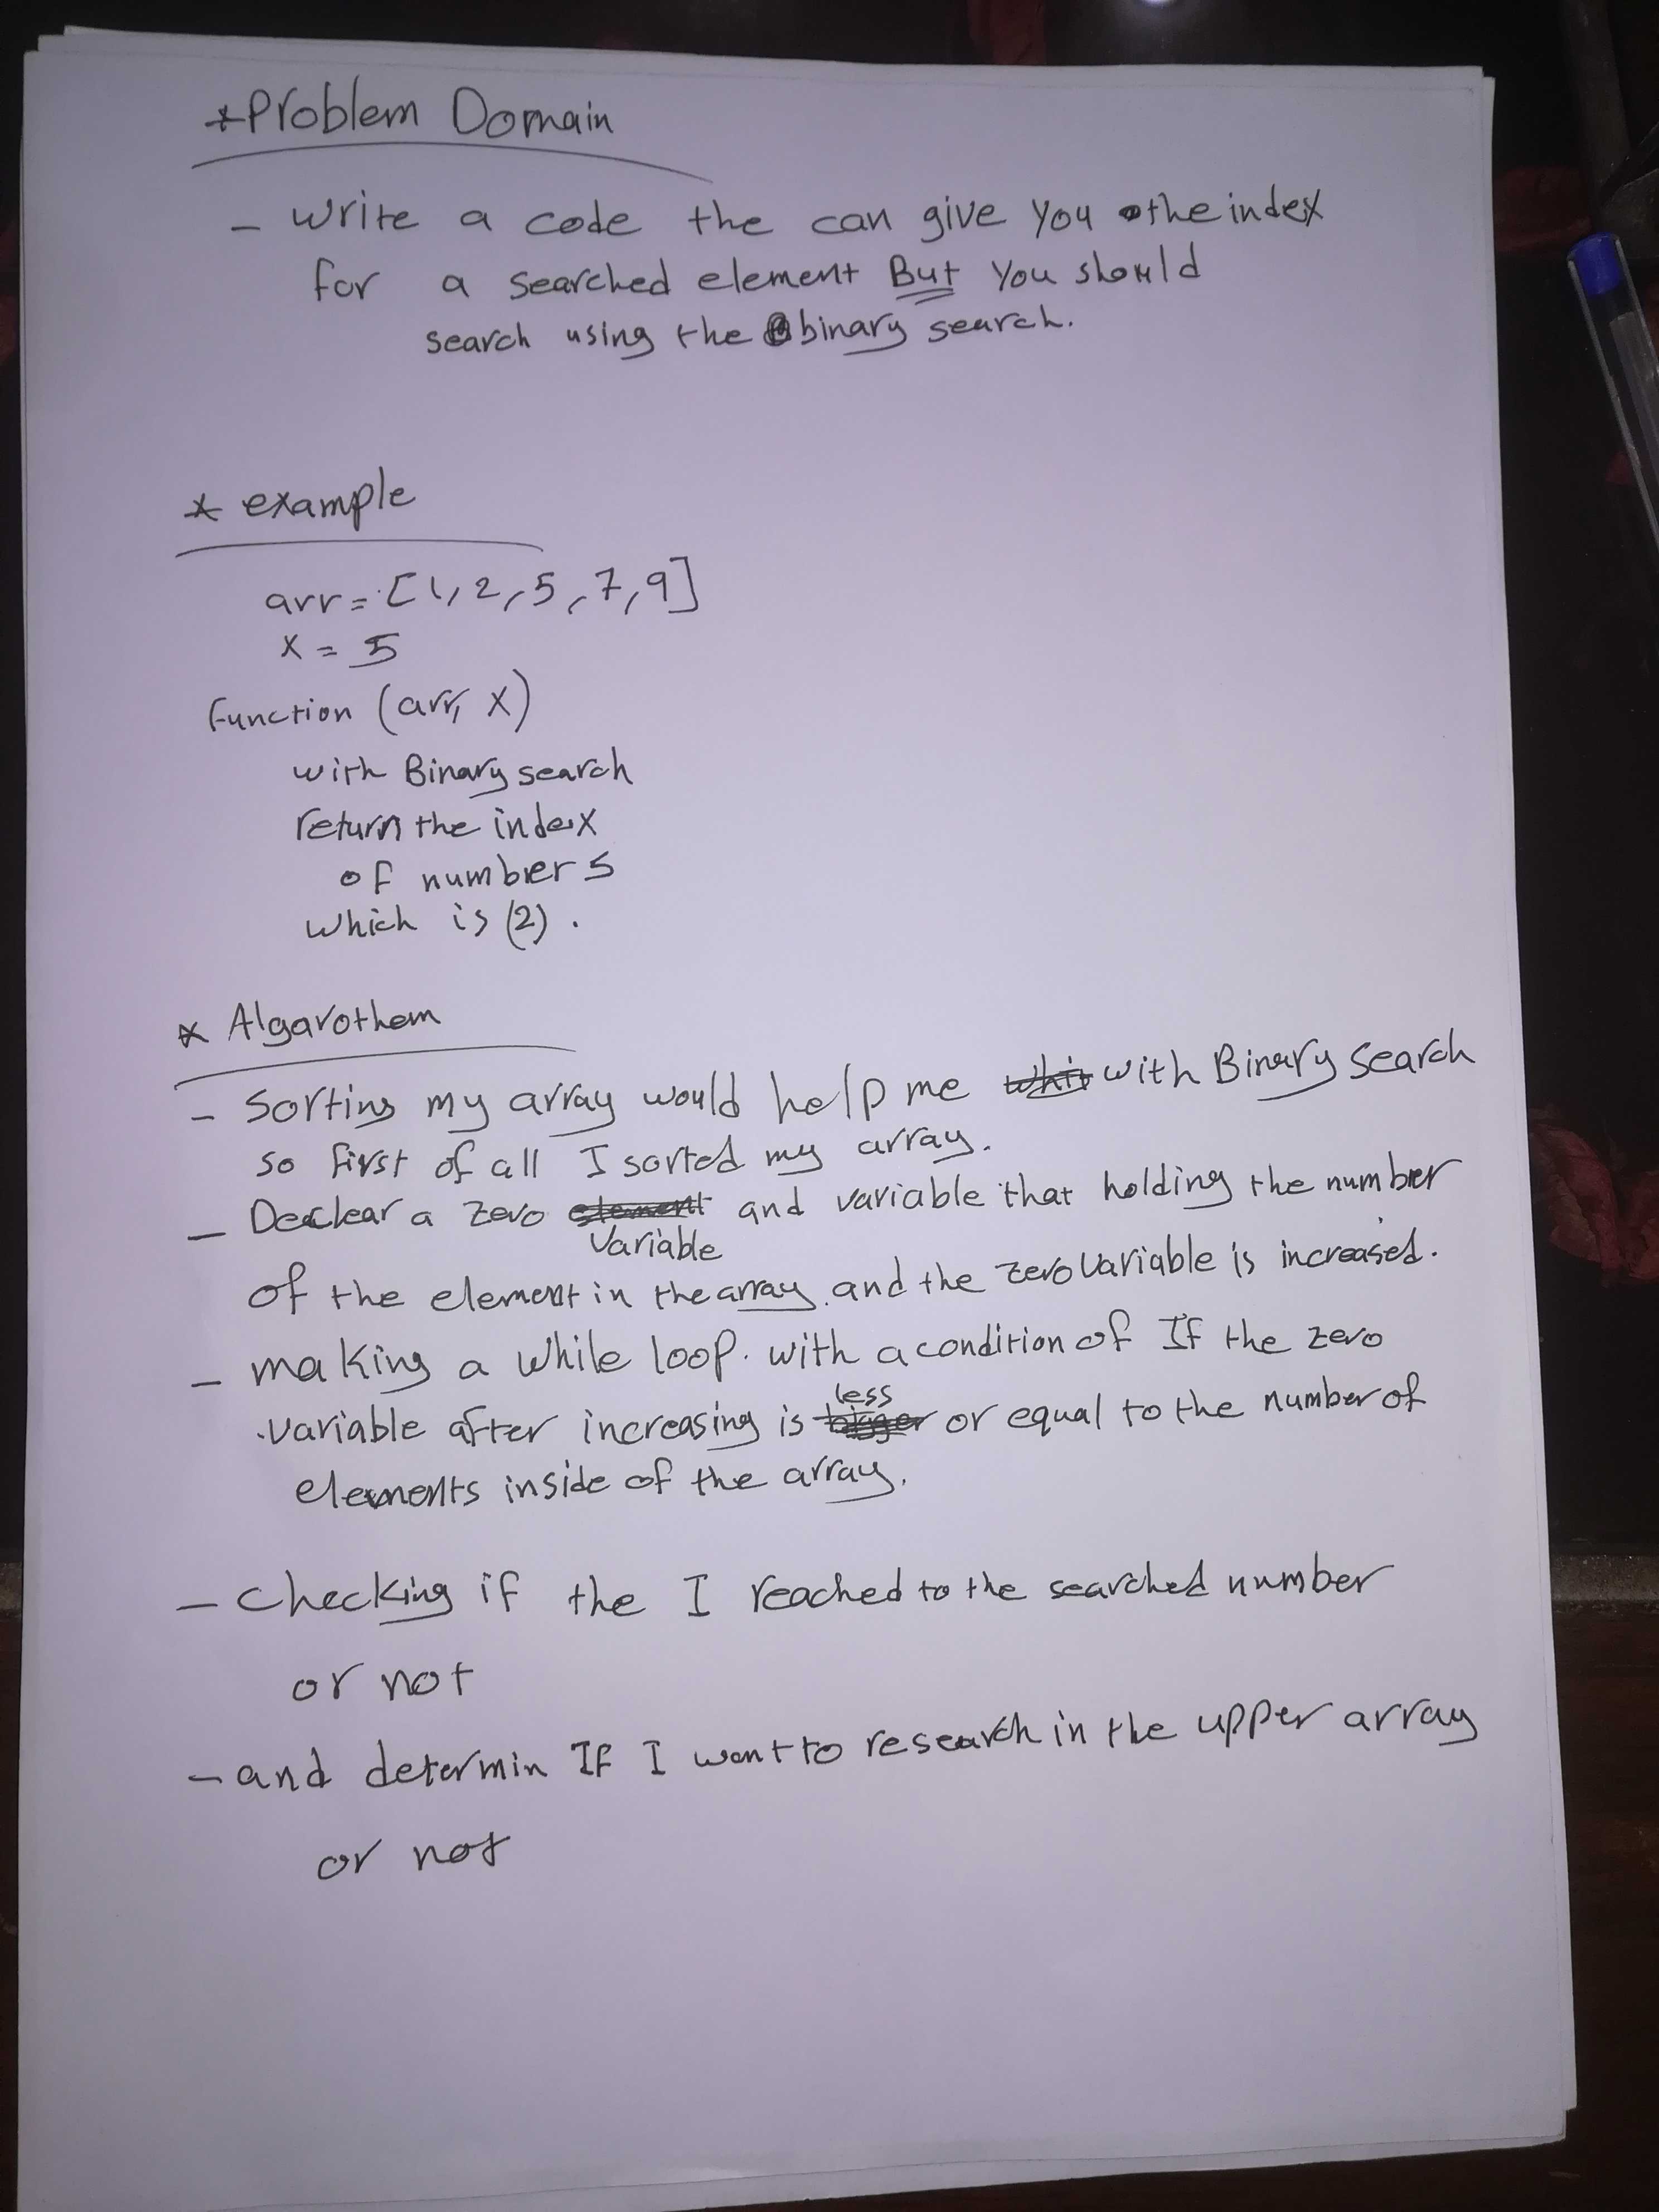 *Problem Domain
- write a code the can give you the index
for a searched element But you should
search using the binary search.
* example
arr = [1, 2, 5, 7, 9]
x = 5
Function (arr, x)
with Binary search
return the index
of number 5
which is (2).
* Algarothem
- Sorting my array would help me with Binary search
so first of all I sorted my array.
- Declear a zero element and variable that holding the number
Variable
of the element in the array. and the zero variable is increased.
- making a while loop. with a condition of If the zero
less
variable after increasing is bigger or equal to the number of
elements inside of the array.
- checking if the I reached to the searched number
or not
- and determin IF I want to research in the upper array
or not